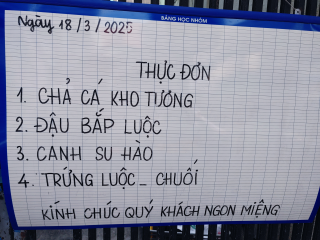 BẢNG HỌC NHÓM
Ngày 18/3/2025
THỰC ĐƠN
1. CHẢ CÁ KHO TƯƠNG
2. ĐẬU BẮP LUỘC
3. CANH SU HÀO
4. TRỨNG LUỘC - CHUỐI
KÍNH CHÚC QUÝ KHÁCH NGON MIỆNG